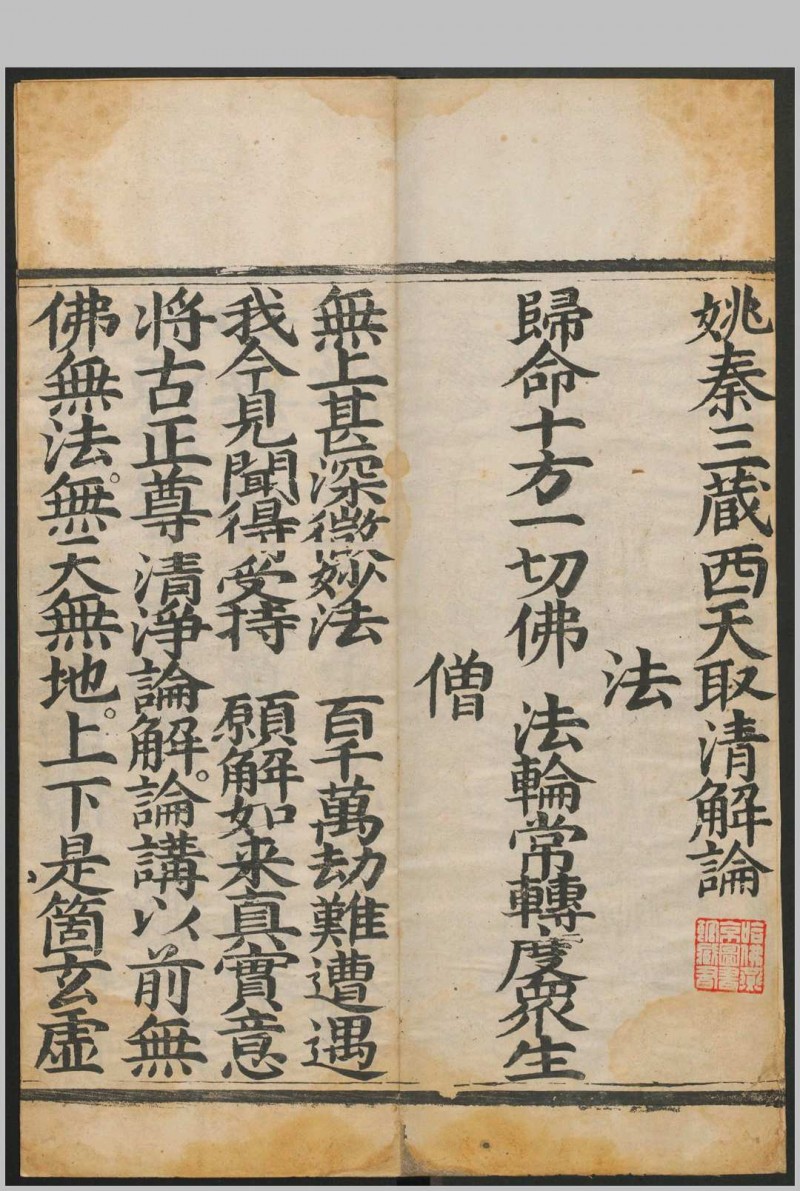 姚秦三藏西天取清解論
法
歸命十方一切佛 法輪常轉度衆生
僧
無上甚深微妙法 百千萬劫難遭遇
我今見聞得受持 願解如来真實意
将古正尊清淨論解。論講以前無
佛無法。無天無地。上下是箇玄虚